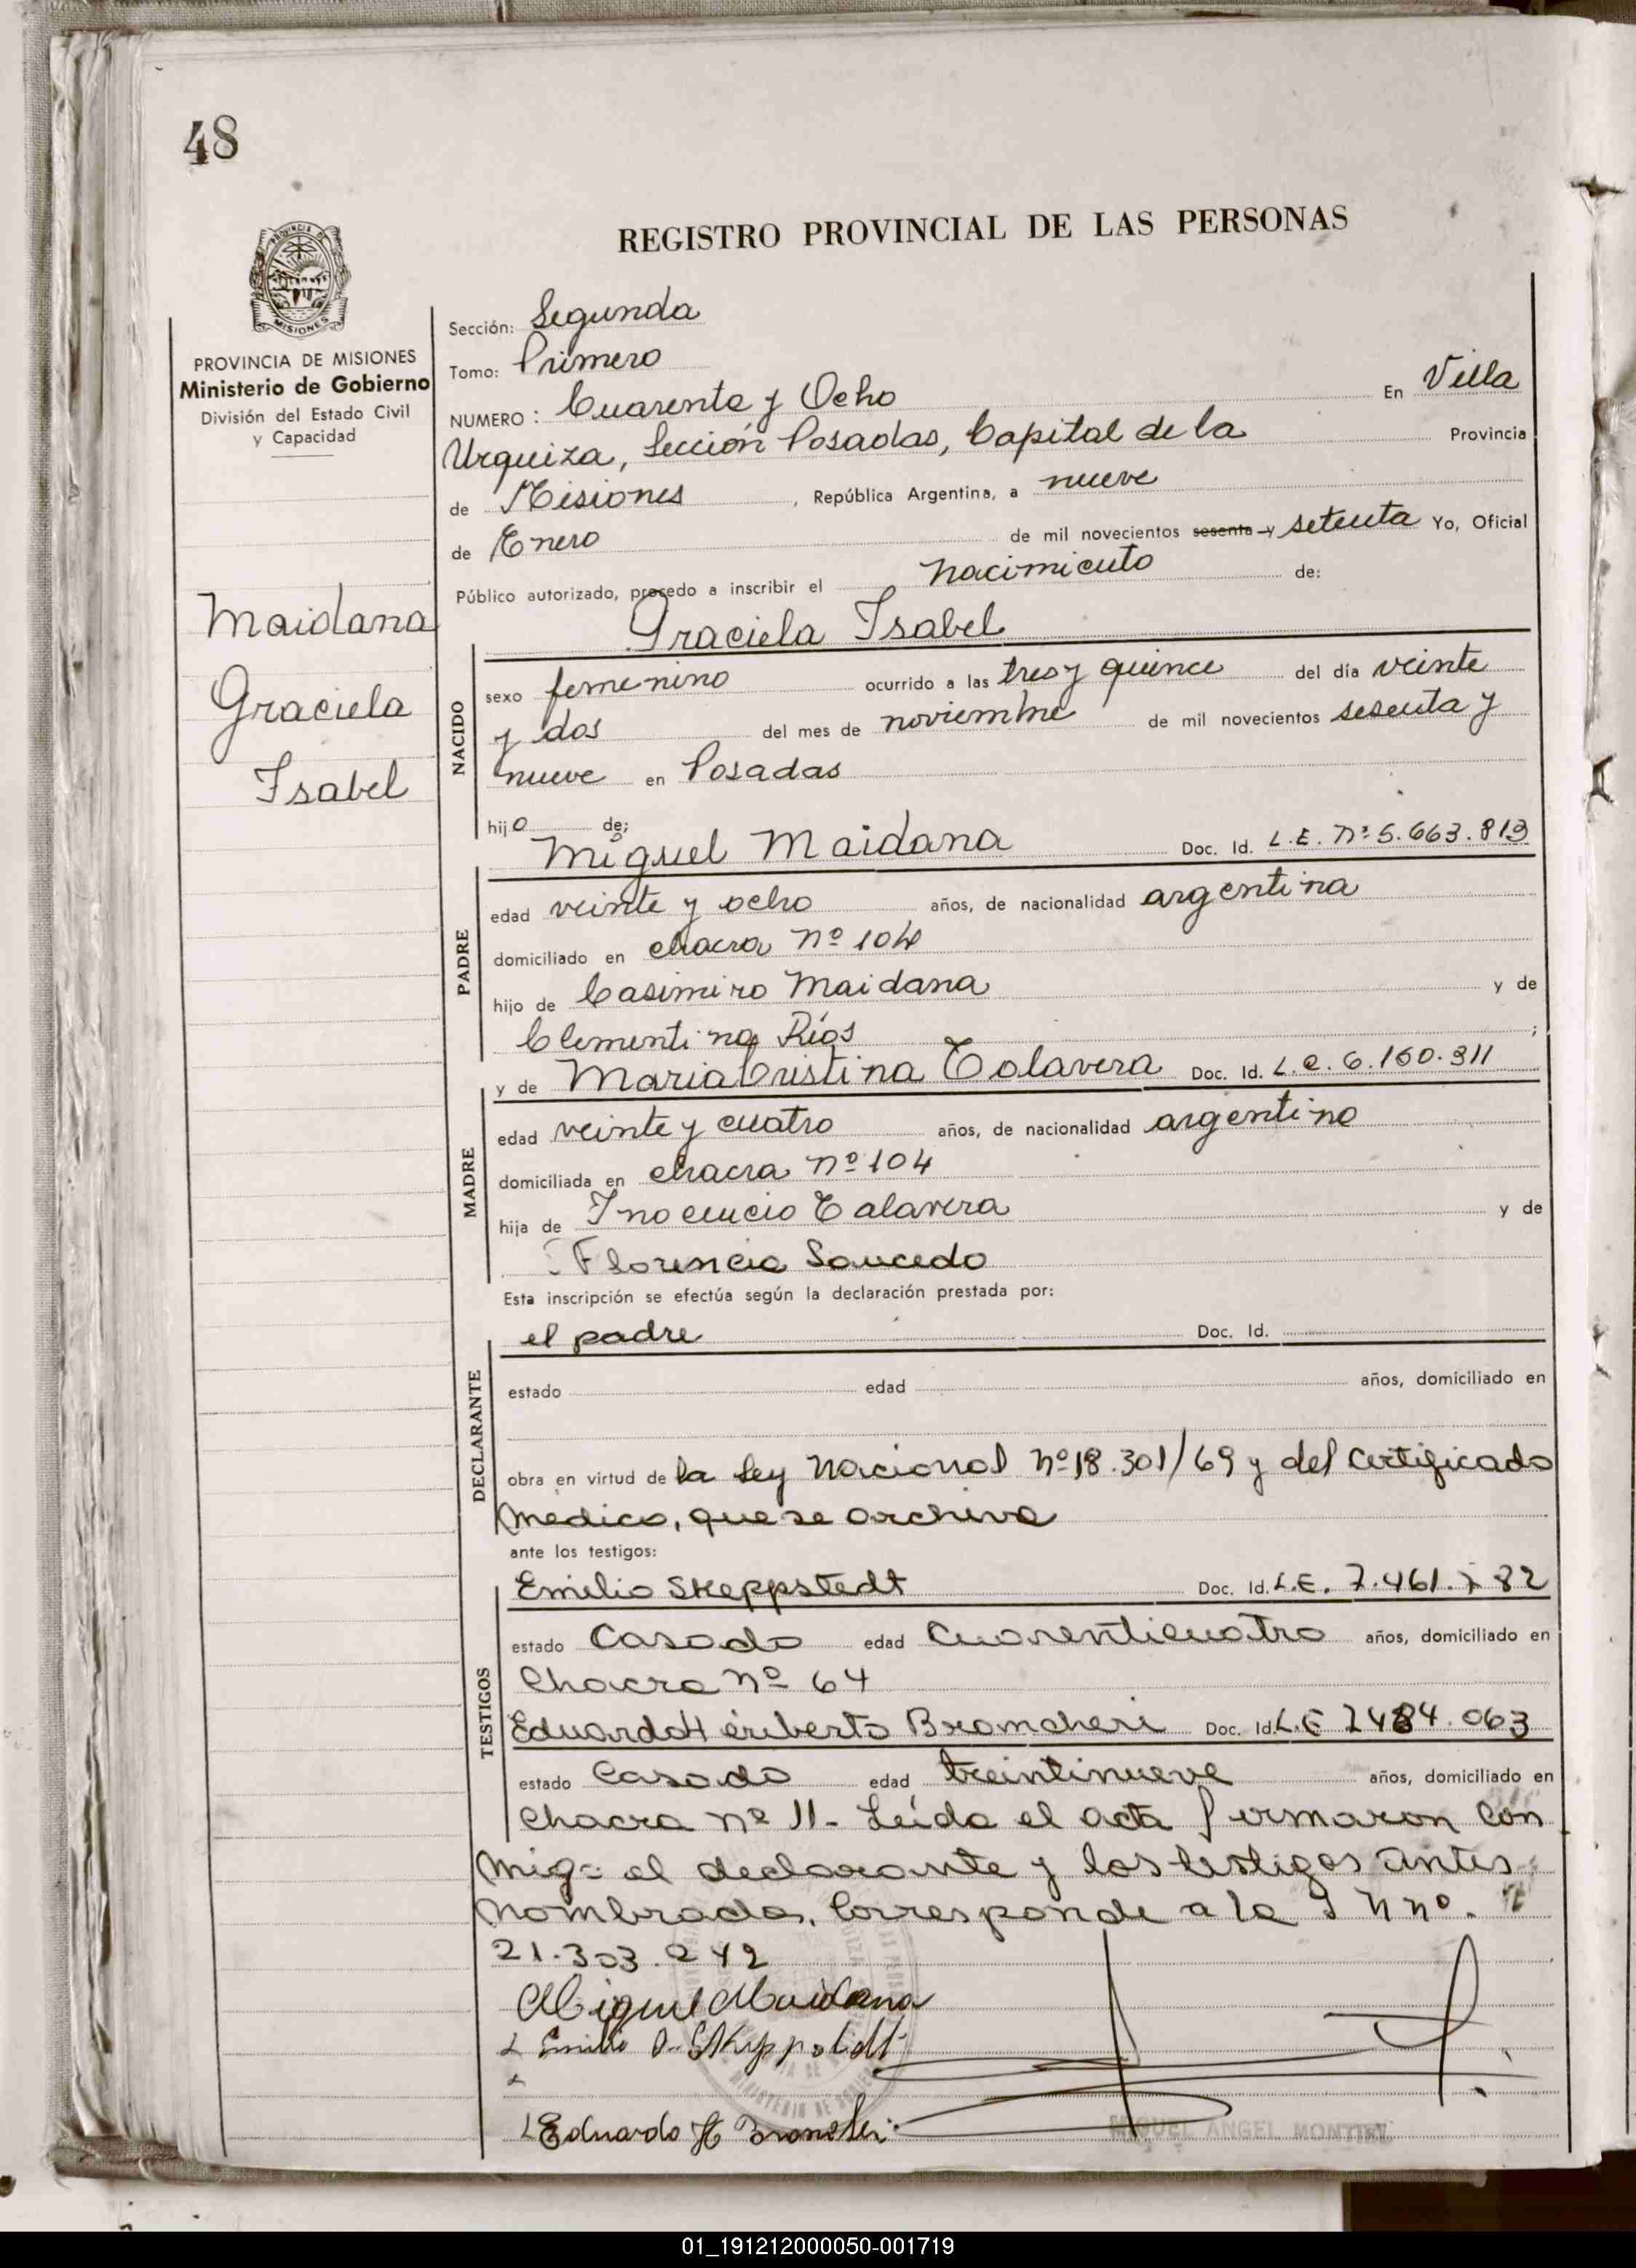 48
REGISTRO PROVINCIAL DE LAS PERSONAS
PROVINCIA DE MISIONES
Ministerio de Gobierno
División del Estado Civil
y Capacidad
Maidana
Graciela
Isabel
Sección: Segunda
Tomo: Primero
NUMERO: Cuarenta y Ocho En Villa
Urquiza, Sección Posadas, Capital de la Provincia
de Misiones, República Argentina, a nueve
de Enero de mil novecientos sesenta y setenta Yo, Oficial
Público autorizado, procedo a inscribir el nacimiento de:
Graciela Isabel
NACIDO
sexo femenino ocurrido a las tres y quince del día veinte
y dos del mes de noviembre de mil novecientos sesenta y
nueve en Posadas
hijo de:
Miguel Maidana Doc. Id. L.E. Nº 5.663.813
PADRE
edad veinte y ocho años, de nacionalidad argentina
domiciliado en chacra nº 104
hijo de Casimiro Maidana y de
Clementina Ríos;
y de Maria Cristina Talavera Doc. Id. L.C. 6.160.311
MADRE
edad veinte y cuatro años, de nacionalidad argentina
domiciliada en chacra nº 104
hija de Inocencio Talavera y de
Florencia Saucedo
Esta inscripción se efectúa según la declaración prestada por:
el padre Doc. Id.
DECLARANTE
estado edad años, domiciliado en
obra en virtud de la Ley Nacional nº 18.301/69 y del Certificado
Medico, que se archiva
ante los testigos:
Emilio Skeppstedt Doc. Id. L.E. 7.461.782
TESTIGOS
estado Casado edad Cuarenticuatro años, domiciliado en
Chacra nº 64
Eduardo Heriberto Brancheri Doc. Id. L.E 7484.063
estado Casado edad treintinueve años, domiciliado en
Chacra nº 11- Leída el acta firmaron con
migo el declarante y los testigos antes
nombrados. Corresponde a la nº.
21.303.242
Miguel Maidana
Emilio Skeppstedt
Eduardo H Brancheri
MIGUEL ANGEL MONTIEL
01_191212000050-001719